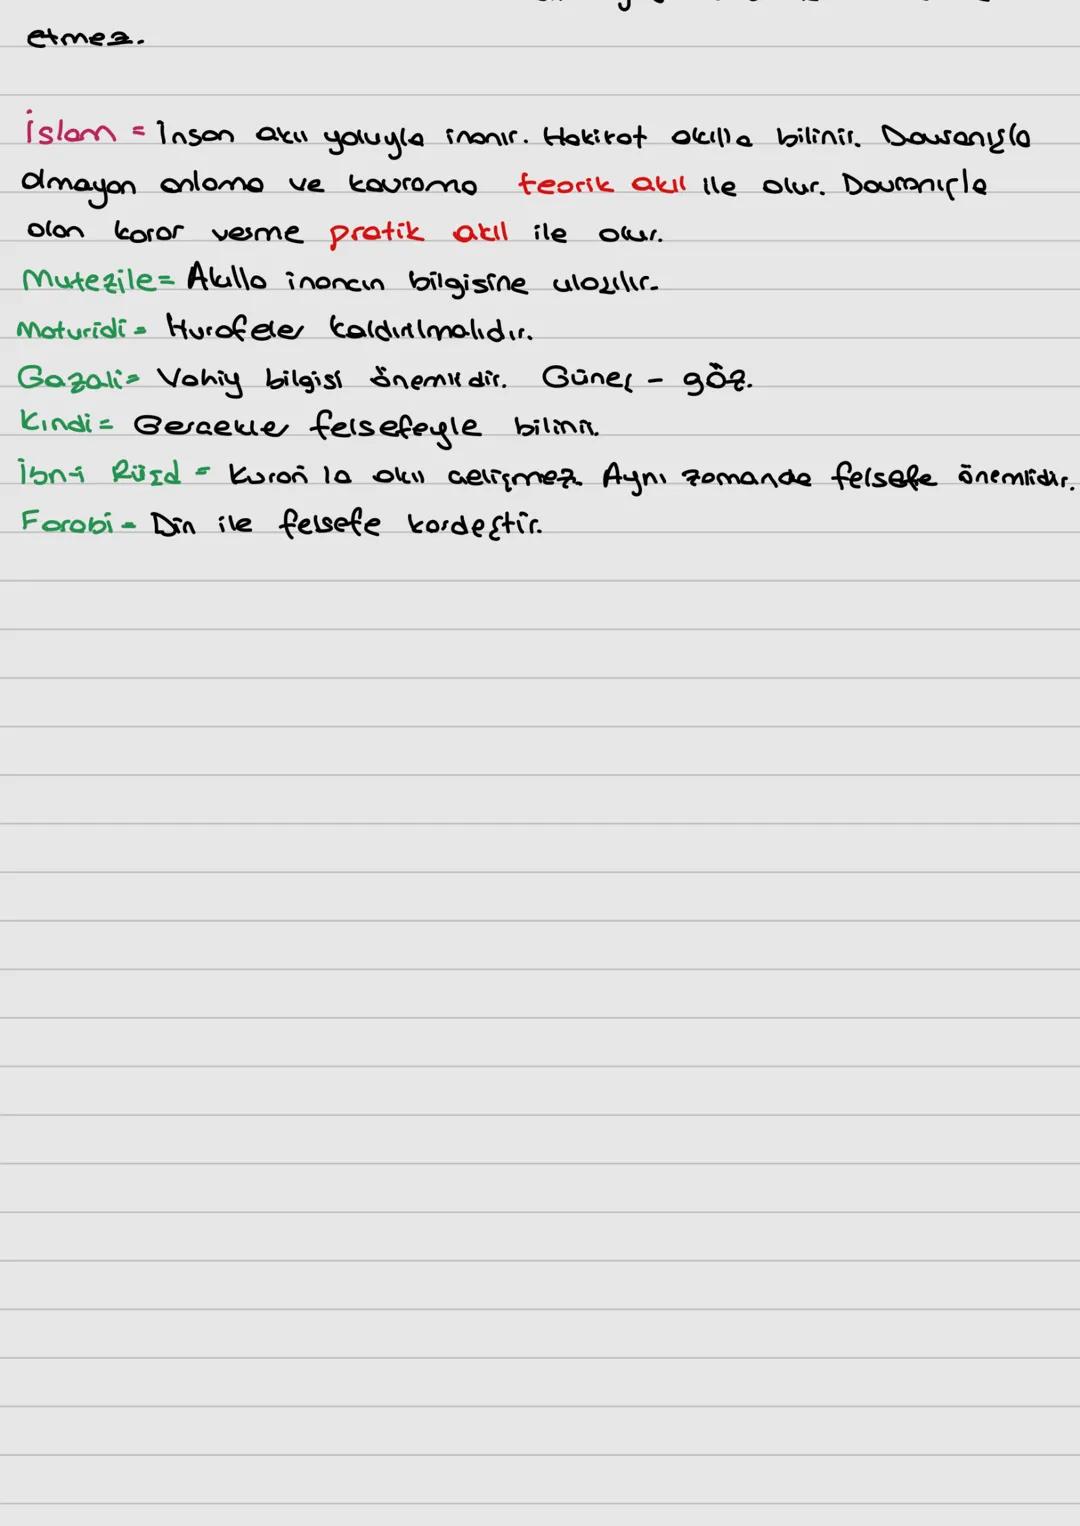 etmez.
İslam = İnsan akıl yoluyla inanır. Hakikat akılla bilinir. Davranışla
olmayan anlama ve kavrama teorik akıl ile olur. Davranışla
olan karar verme pratik akıl ile olur.
Mutezile = Akılla inancın bilgisine ulaşılır.
Maturidi = Hurafeler kaldırılmalıdır.
Gazali = Vahiy bilgisi önemlidir. Güneş - göz.
Kindi = Gerçekler felsefeyle bilinir.
İbn-i Rüşd = Kuran la akıl çelişmez. Aynı zamanda felsefe önemlidir.
Farabi = Din ile felsefe kardeştir.